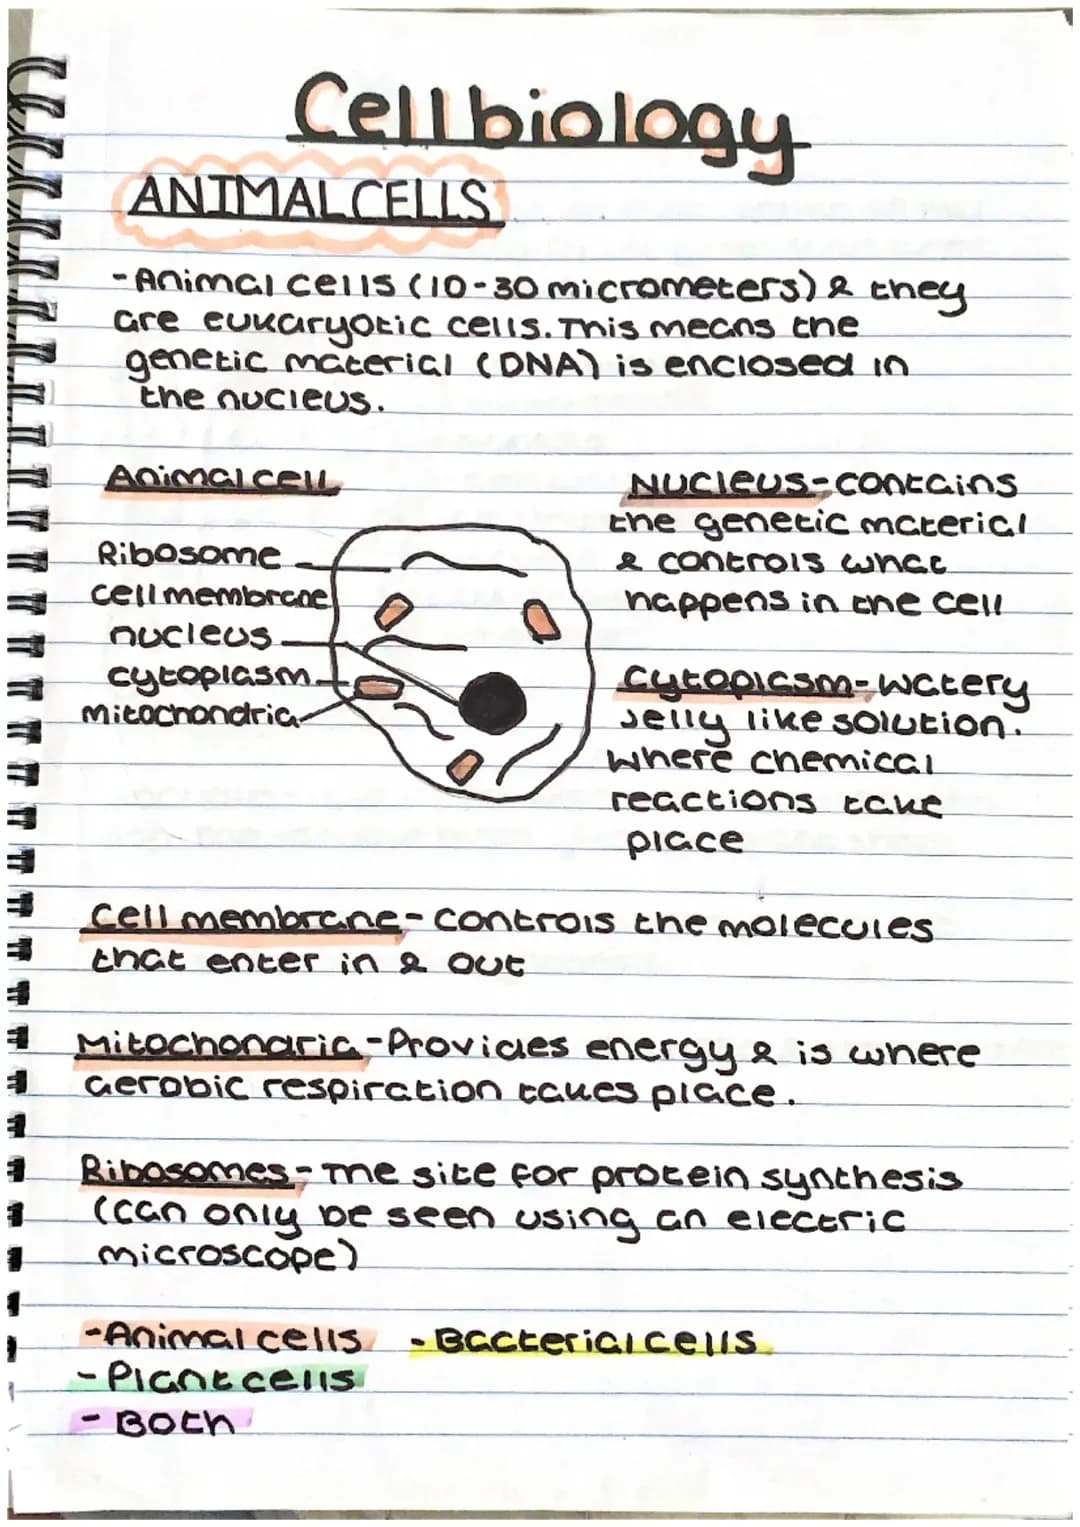 Cell biology
ANIMAL CELLS
-Animal cells (10-30 micrometers) & they
are eukaryotic cells. This means the
genetic material (DNA) is enclosed in
the nucleus.
Animal cell
Ribosome
cell membrane
nucleus
cytoplasm
mitochondria
Nucleus-contains
the genetic material
& controls what
happens in the cell
Cytoplasm-watery
jelly like solution.
where chemical
reactions take
place
Cell membrane- controls the molecules
that enter in & out
Mitochondria-Provides energy & is where
aerobic respiration takes place.
Ribosomes- The site for protein synthesis
(can only be seen using an electric
microscope)
-Animal cells -Bacterial cells
-Plant cells
-Both